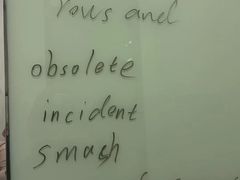 and
obsolete
incident
smash